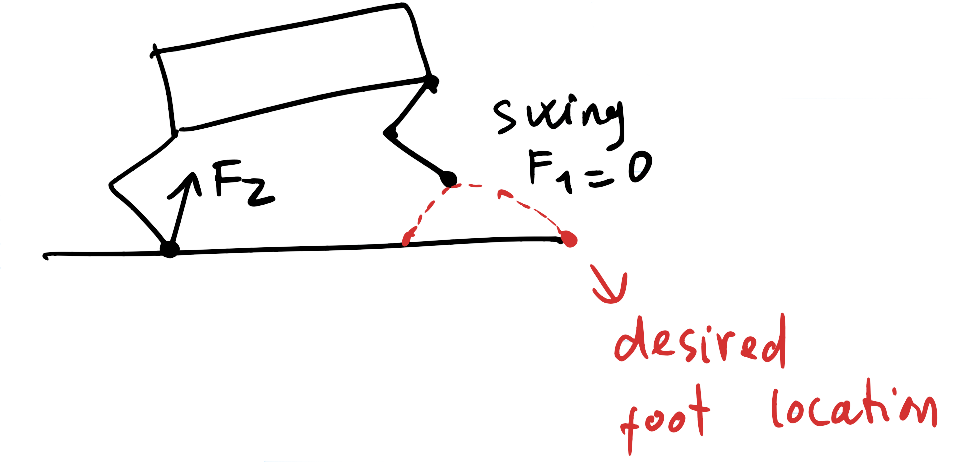 swing
F₁ = 0
F₂
desired
foot location